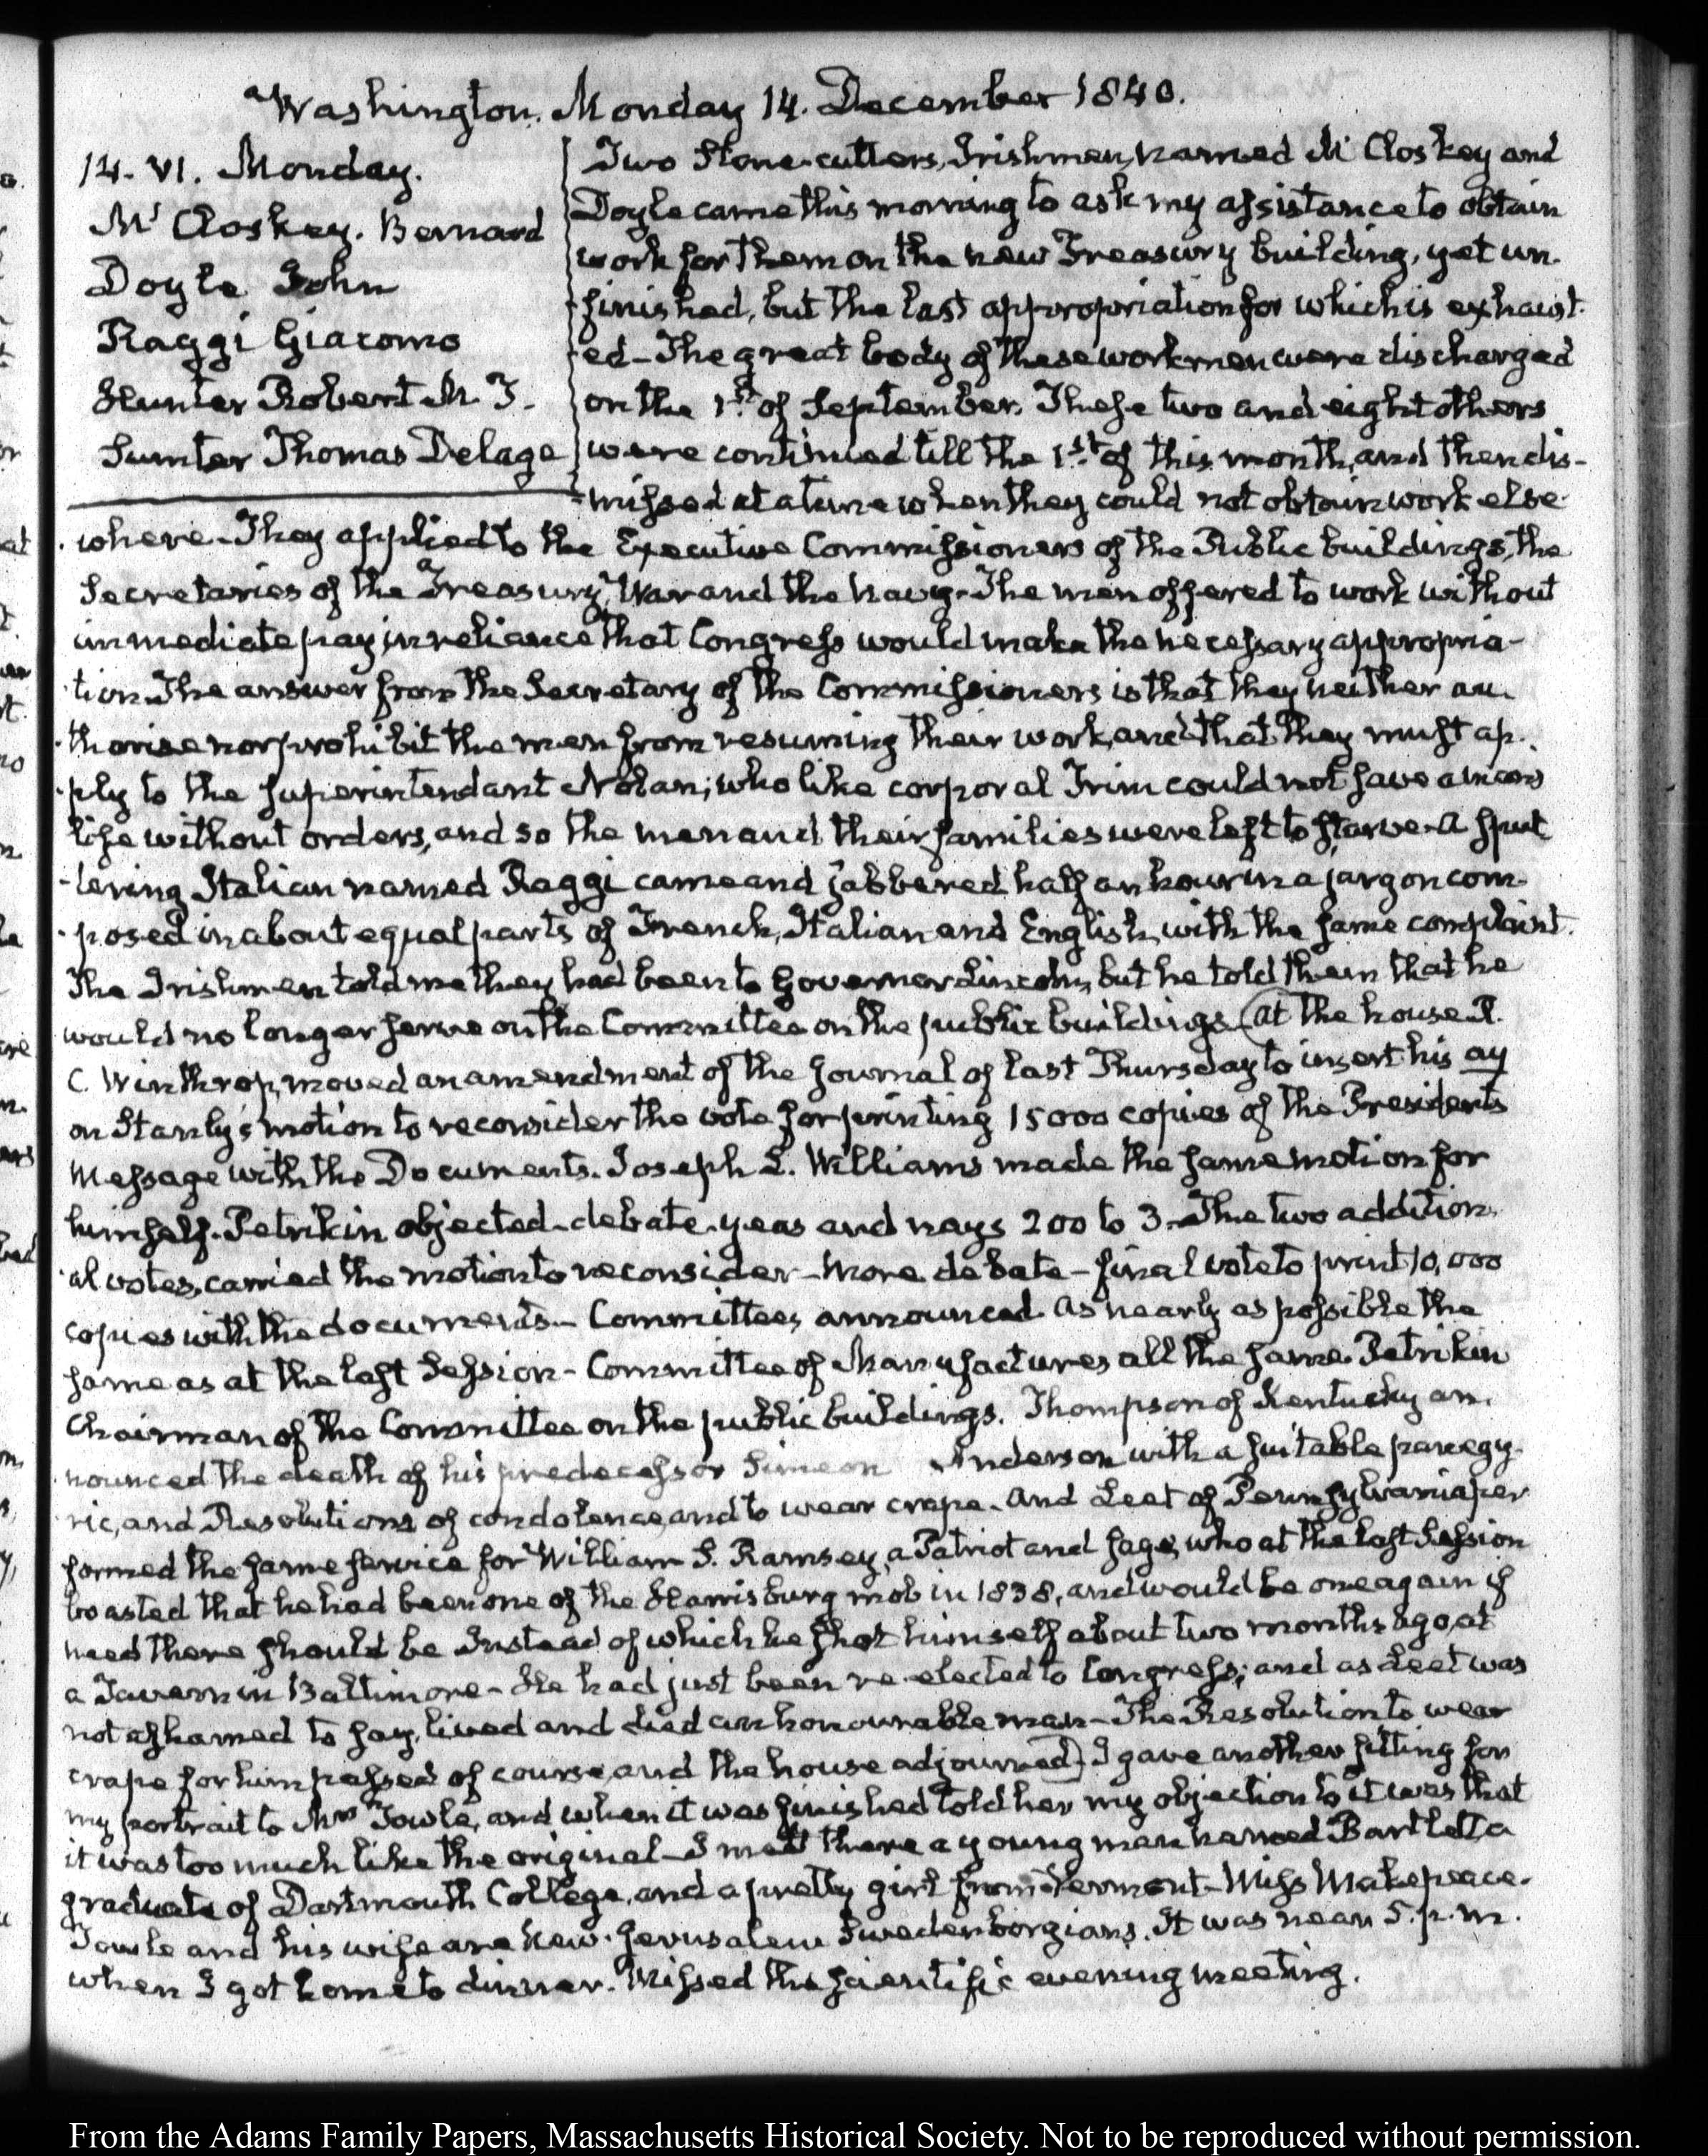 Washington. Monday 14. December 1840.
14. VI. Monday.
Mc Closkey. Bernard
Doyle John
Raggi Giacomo
Hunter Robert M. T.
Sumter Thomas Delage
Two Stone-cutters, Irishmen, named Mc Closkey and
Doyle came this morning to ask my assistance to obtain
work for them on the new Treasury building, yet un-
finished, but the last appropriation for which is exhaust-
ed- The great body of these workmen were discharged
on the 1st. of September. These two and eight others
were continued till the 1st. of this month, and then dis-
missed at a time when they could not obtain work else-
where. They applied to the Executive Commissioners of the Public buildings, the
Secretaries of the Treasury, War and the Navy- The men offered to work without
immediate pay in reliance that Congress would make the necessary appropria-
tion. The answer from the Secretary of the Commissioners is that they neither au-
thorise nor prohibit the men from resuming their work, and that they must ap-
ply to the Superintendant Nolan; who like corporal Trim could not save a mans
life without orders, and so the men and their families were left to starve- A sput-
tering Italian named Raggi came and jabbered half an hour in a jargon com-
posed in about equal parts of French, Italian and English, with the same complaint.
The Irishmen told me they had been to Governor Lincoln, but he told them that he
would no longer serve on the Committee on the public buildings (at the house R.
C. Winthrop, moved an amendment of the Journal of last Thursday to insert his ay
on Stanly's motion to reconsider the vote for printing 15000 copies of the Presidents
Message with the Documents. Joseph L. Williams made the same motion for
himself. Petrikin objected- debate- yeas and nays 200 to 3- The two addition-
al votes, carried the motion to reconsider- More debate- final vote to print 10,000
copies with the documents- Committees announced. As nearly as possible the
same as at the last Session- Committee of Manufactures all the same. Petrikin
Chairman of the Committee on the public buildings. Thompson of Kentucky an-
nounced the death of his predecessor Simeon Anderson with a suitable panegy-
ric, and Resolutions of condolence, and to wear crape. And Leet of Pennsylvania per-
formed the same service for William S. Ramsey, a Patriot and sage, who at the last Session
boasted that he had been one of the Harrisburg mob in 1838, and would be one again if
need there should be. Instead of which he shot himself about two months ago, at
a Tavern in Baltimore- He had just been re-elected to Congress; and as Leet was
not ashamed to say, lived and died an honourable man- The Resolution to wear
crape for him passed of course, and the house adjourned) I gave another sitting for
my portrait to Mrs Towle, and when it was finished told her my objection to it was that
it was too much like the original- I met there a young man named Bartlett a
graduate of Dartmouth College, and a pretty girl from Vermont- Miss Makepeace.
Towle and his wife are New-Jerusalem Swedenborgians. It was near 5. p.m.
when I got home to dinner. Missed the scientific evening meeting.
From the Adams Family Papers, Massachusetts Historical Society. Not to be reproduced without permission.